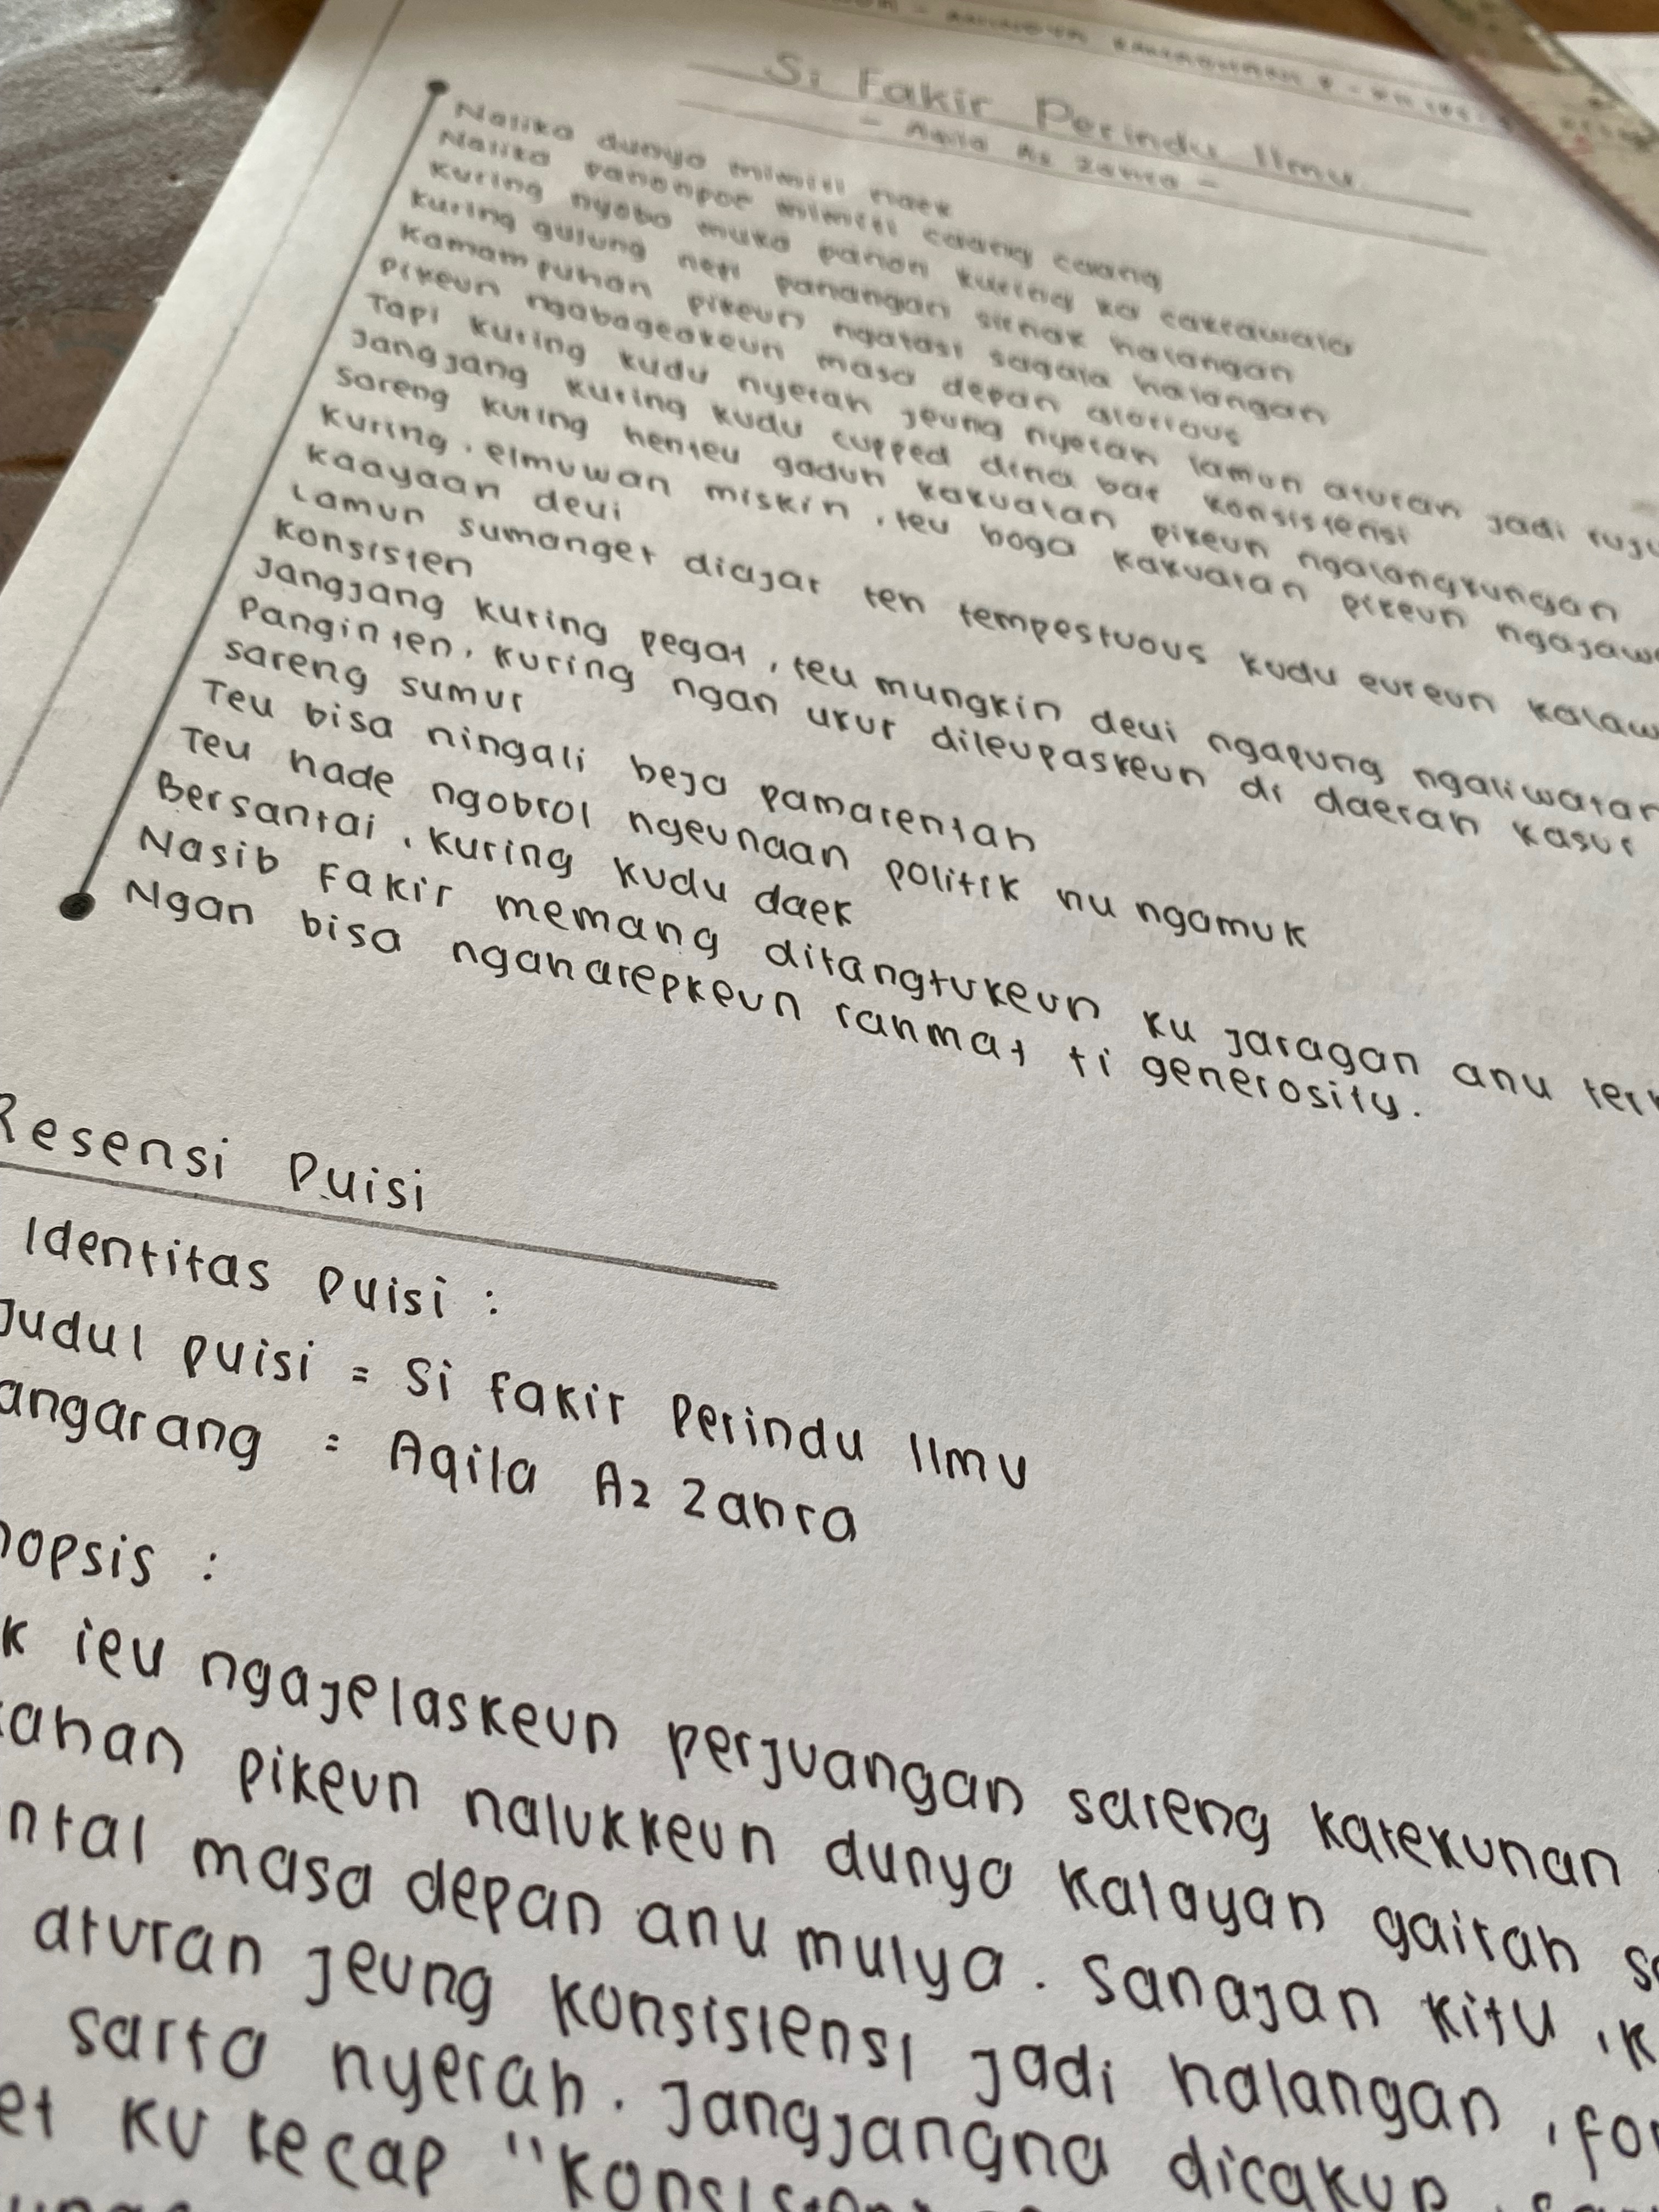 Si Fakir Perindu Ilmu
- Aqila Az Zahra -
Nalika dunya mimiti naek
Nalika panonpoe mimiti caang caang
Kuring nyoba muka panon kuring ka cakrawala
Kuring gulung nepi panangan sirnak halangan
Kamampuhan pikeun ngatasi sagala halangan
Pikeun ngabageakeun masa depan glorious
Tapi kuring kudu nyerah jeung nyerah lamun aturan jadi
Jangjang kuring kudu cupped dina bar konsistensi
Sareng kuring henteu gaduh kakuatan pikeun ngalangkungan
Kuring, elmuwan miskin, teu boga kakuatan pikeun
kaayaan deui
Lamun sumanget diajar teh tempestuous kudu eureun
Konsisten
Jangjang kuring pegat, teu mungkin deui ngapung ngaliwatan
Panginten, kuring ngan ukur dileupaskeun di daerah kasur
sareng sumur
Teu bisa ningali beja pamarentah
Teu hade ngobrol ngeunaan politik nu ngamuk
Bersantai, kuring kudu daek
Nasib fakir memang ditangtukeun ku jaragan anu
Ngan bisa ngaharepkeun rahmat ti generosity.
Resensi Puisi
Identitas Puisi :
Judul puisi = Si fakir Perindu Ilmu
angarang = Aqila Az Zahra
nopsis :
k ieu ngajelaskeun perjuangan sareng katekunan
kahan pikeun nalukkeun dunya kalayan gairah
ntal masa depan anu mulya. Sanajan kitu,
aturan jeung konsistensi jadi halangan,
sarta nyerah. Jangjangna dicakup
et ku kecap "Konsisten